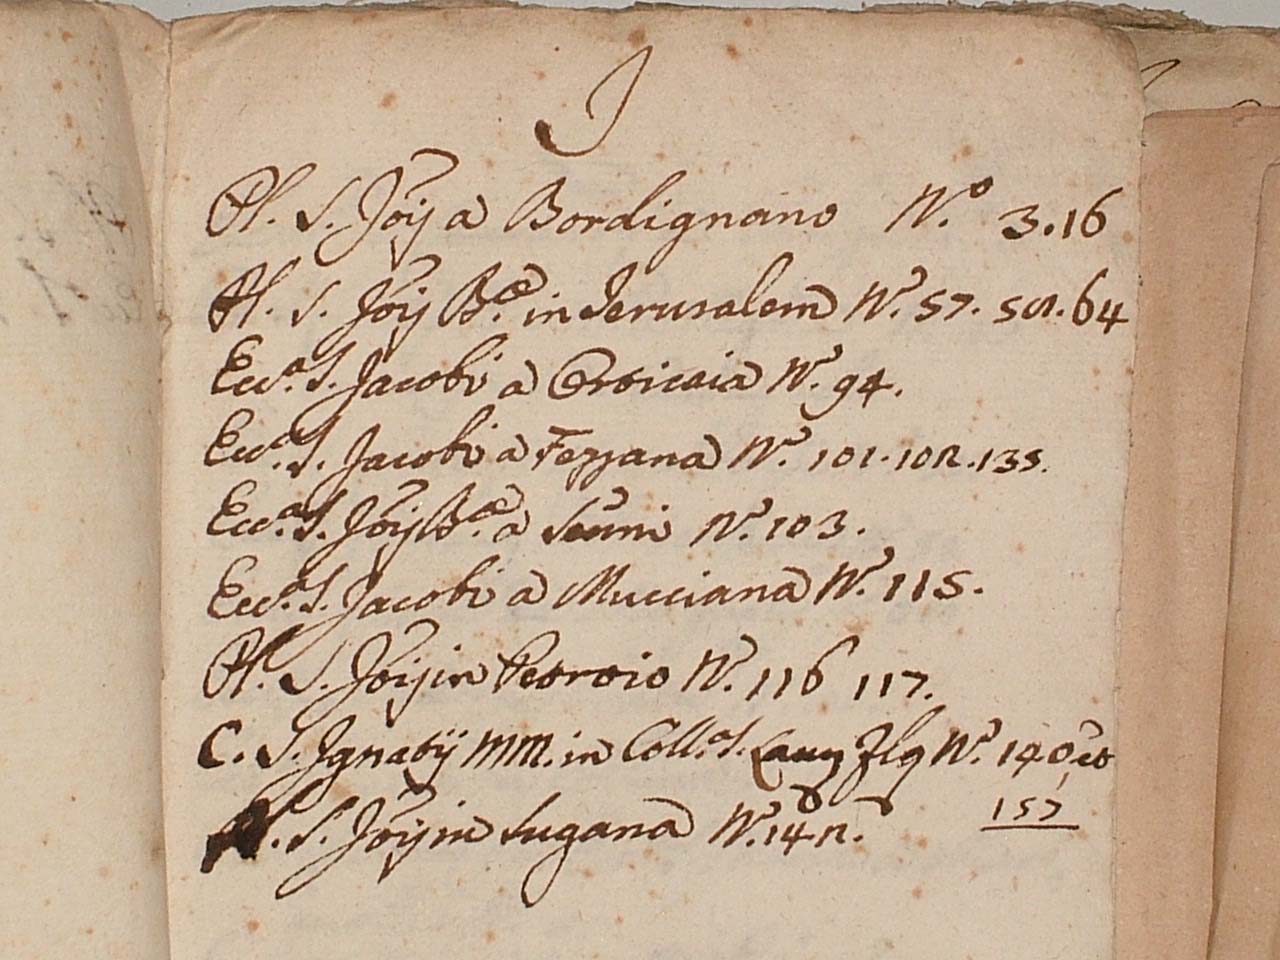 J
Pl. S. Jõis a Bordignano N.º 3.16
Pl. S. Jõis Bæ in Jerusalem N.º 57. 58. 64
Ecca. S. Jacobi a Orticaia N.º 94.
Ecca. S. Jacobi a Fezzana N.º 101. 102. 135.
Ecca. S. Jõis Bæ a N.º 103.
Ecca. S. Jacobi a Mucciana N.º 115.
Pl. S. Jõis in Petroio N.º 116 117.
C. S. Ignatij MM. in Coll.ª S. Laurẽ Flọ N.º 140, et
157
Pl. S. Jõis in Sugana N.º 142.